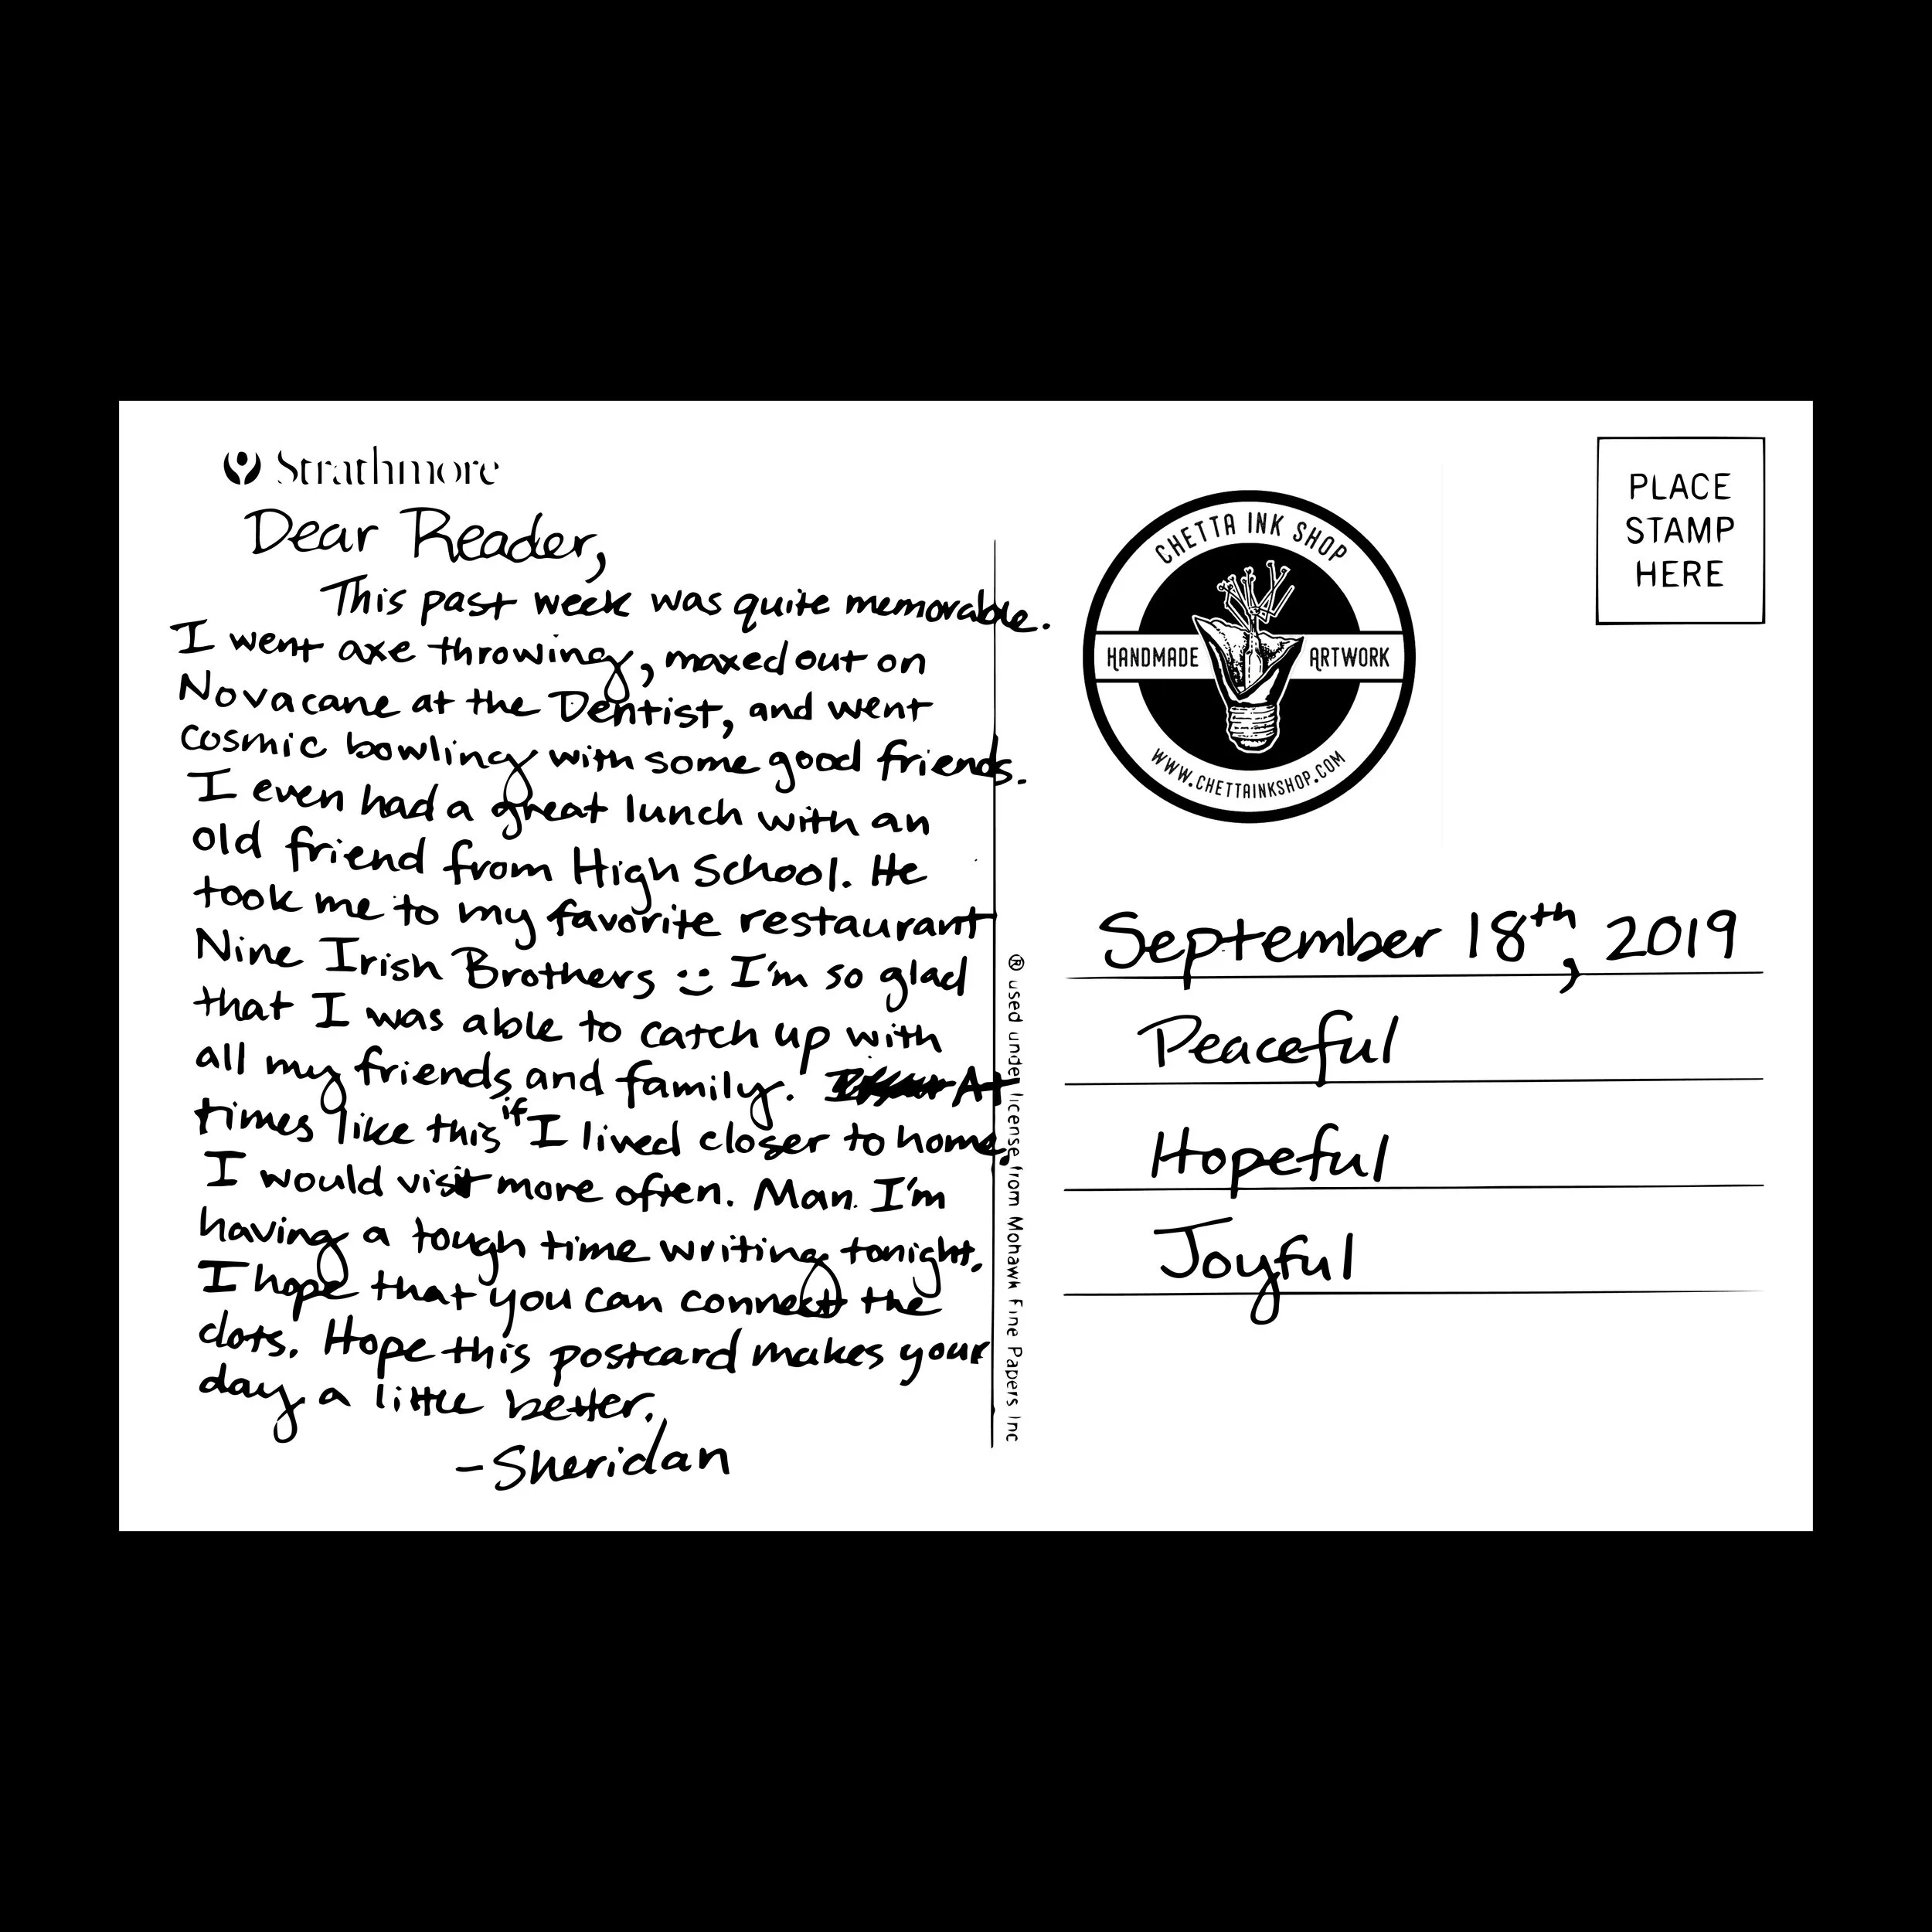 Strathmore
Dear Reader,
This past week was quite memorable.
I went axe throwing, maxed out on
Novacane at the Dentist, and went
cosmic bowling with some good friends.
I even had a great lunch with an
old friend from High School. He
took me to my favorite restaurant
Nine Irish Brothers :) I'm so glad
that I was able to catch up with
all my friends and family. At
times like this if I lived closer to home,
I would visit more often. Man. I'm
having a tough time writing tonight.
I hope that you can connect the
dots. Hope this postcard makes your
day a little better.
-Sheridan
® used under license from Mohawk Fine Papers Inc
CHETTA INK SHOP
HANDMADE ARTWORK
WWW.CHETTAINKSHOP.COM
PLACE
STAMP
HERE
September 18th, 2019
Peaceful
Hopeful
Joyful